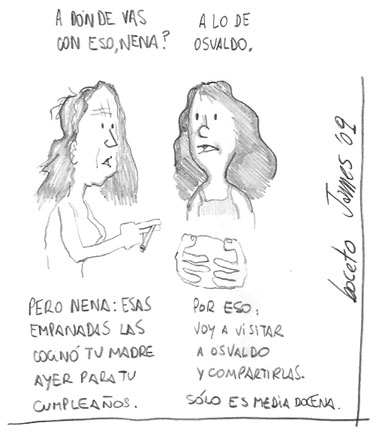 A DÓNDE VAS
CON ESO, NENA?
A LO DE
OSVALDO.
PERO NENA: ESAS
EMPANADAS LAS
COCINÓ TU MADRE
AYER PARA TU
CUMPLEAÑOS.
POR ESO:
VOY A VISITAR
A OSVALDO
Y COMPARTIRLAS.
SÓLO ES MEDIA DOCENA.
boceto James 09